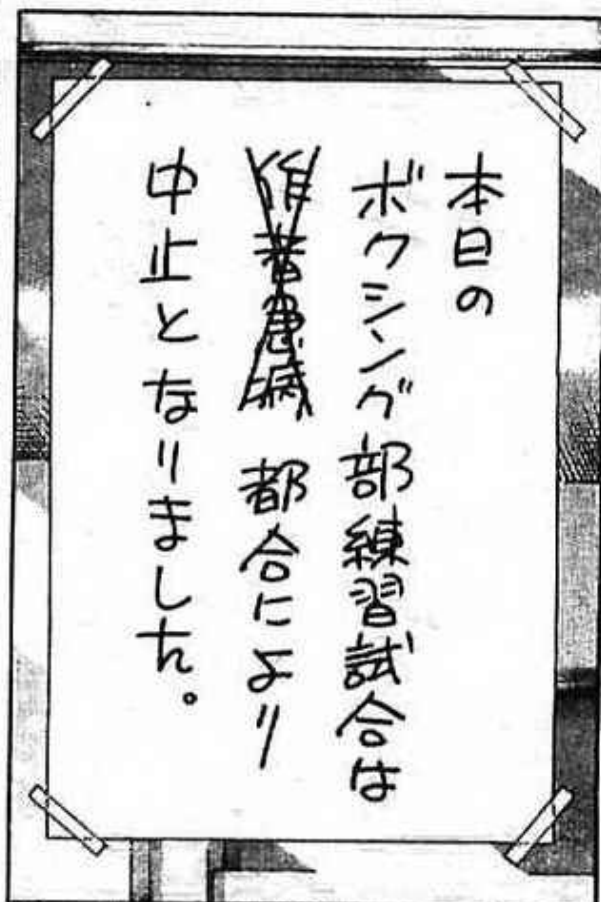 本日の
ボクシング部練習試合は
作者急病 都合により
中止となりました。